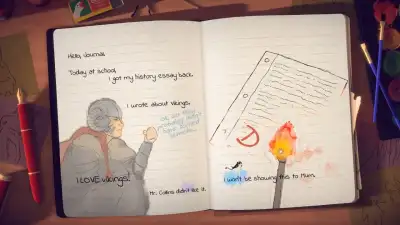 Hello, Journal.
Today at school,
I got my history essay back.
I wrote about vikings.
I LOVE vikings!
Mr. Collins didn't like it.
D
I won't be showing this to Mum.